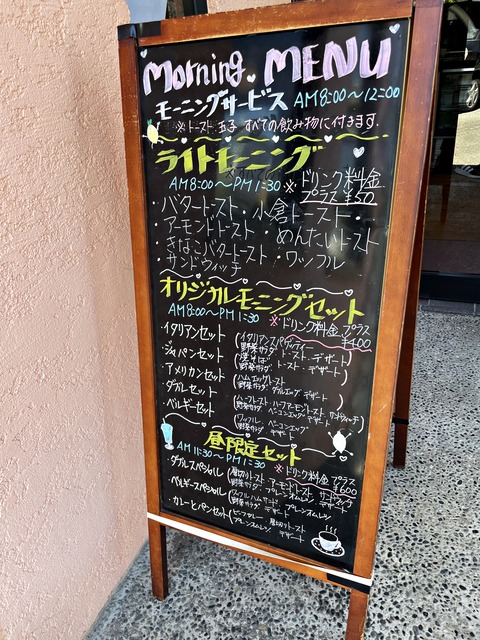 Morning MENU
モーニングサービス AM8:00〜12:00
※トースト 玉子 すべての飲み物に付きます.
ライトモーニング
AM8:00〜PM1:30 ※ドリンク料金
プラス ¥50
・バタートースト・小倉トースト・
アーモンドトースト めんたいトースト
・きなこバタートースト・ワッフル
・サンドウィッチ
オリジナルモーニングセット
AM8:00〜PM1:30
※ドリンク料金 プラス
¥400
・イタリアンセット (イタリアンスパゲッティー
野菜サラダ トースト・デザート)
・ジャパンセット (焼そば トースト・デザート
野菜サラダ)
・アメリカンセット (ハムエッグトースト
野菜サラダ デザート)
・ダブルセット (ハーフトースト・ハーフアーモンドトースト サンドウィッチ
野菜サラダ ベーコンエッグ デザート)
・ベルギーセット (ワッフル ベーコンエッグ
野菜サラダ デザート)
昼限定セット
AM11:30〜PM1:30
※ドリンク料金 プラス
¥600
・ダブルスペシャル (厚切りトースト アーモンドトースト サンドウィッチ
野菜サラダ プレーンオムレツ デザート)
・ベルギースペシャル (ワッフル ハムサンド プレーンオムレツ
野菜サラダ デザート)
・カレーとパンセット (ビーフカレー 厚切りトースト
プレーンオムレツ デザート)